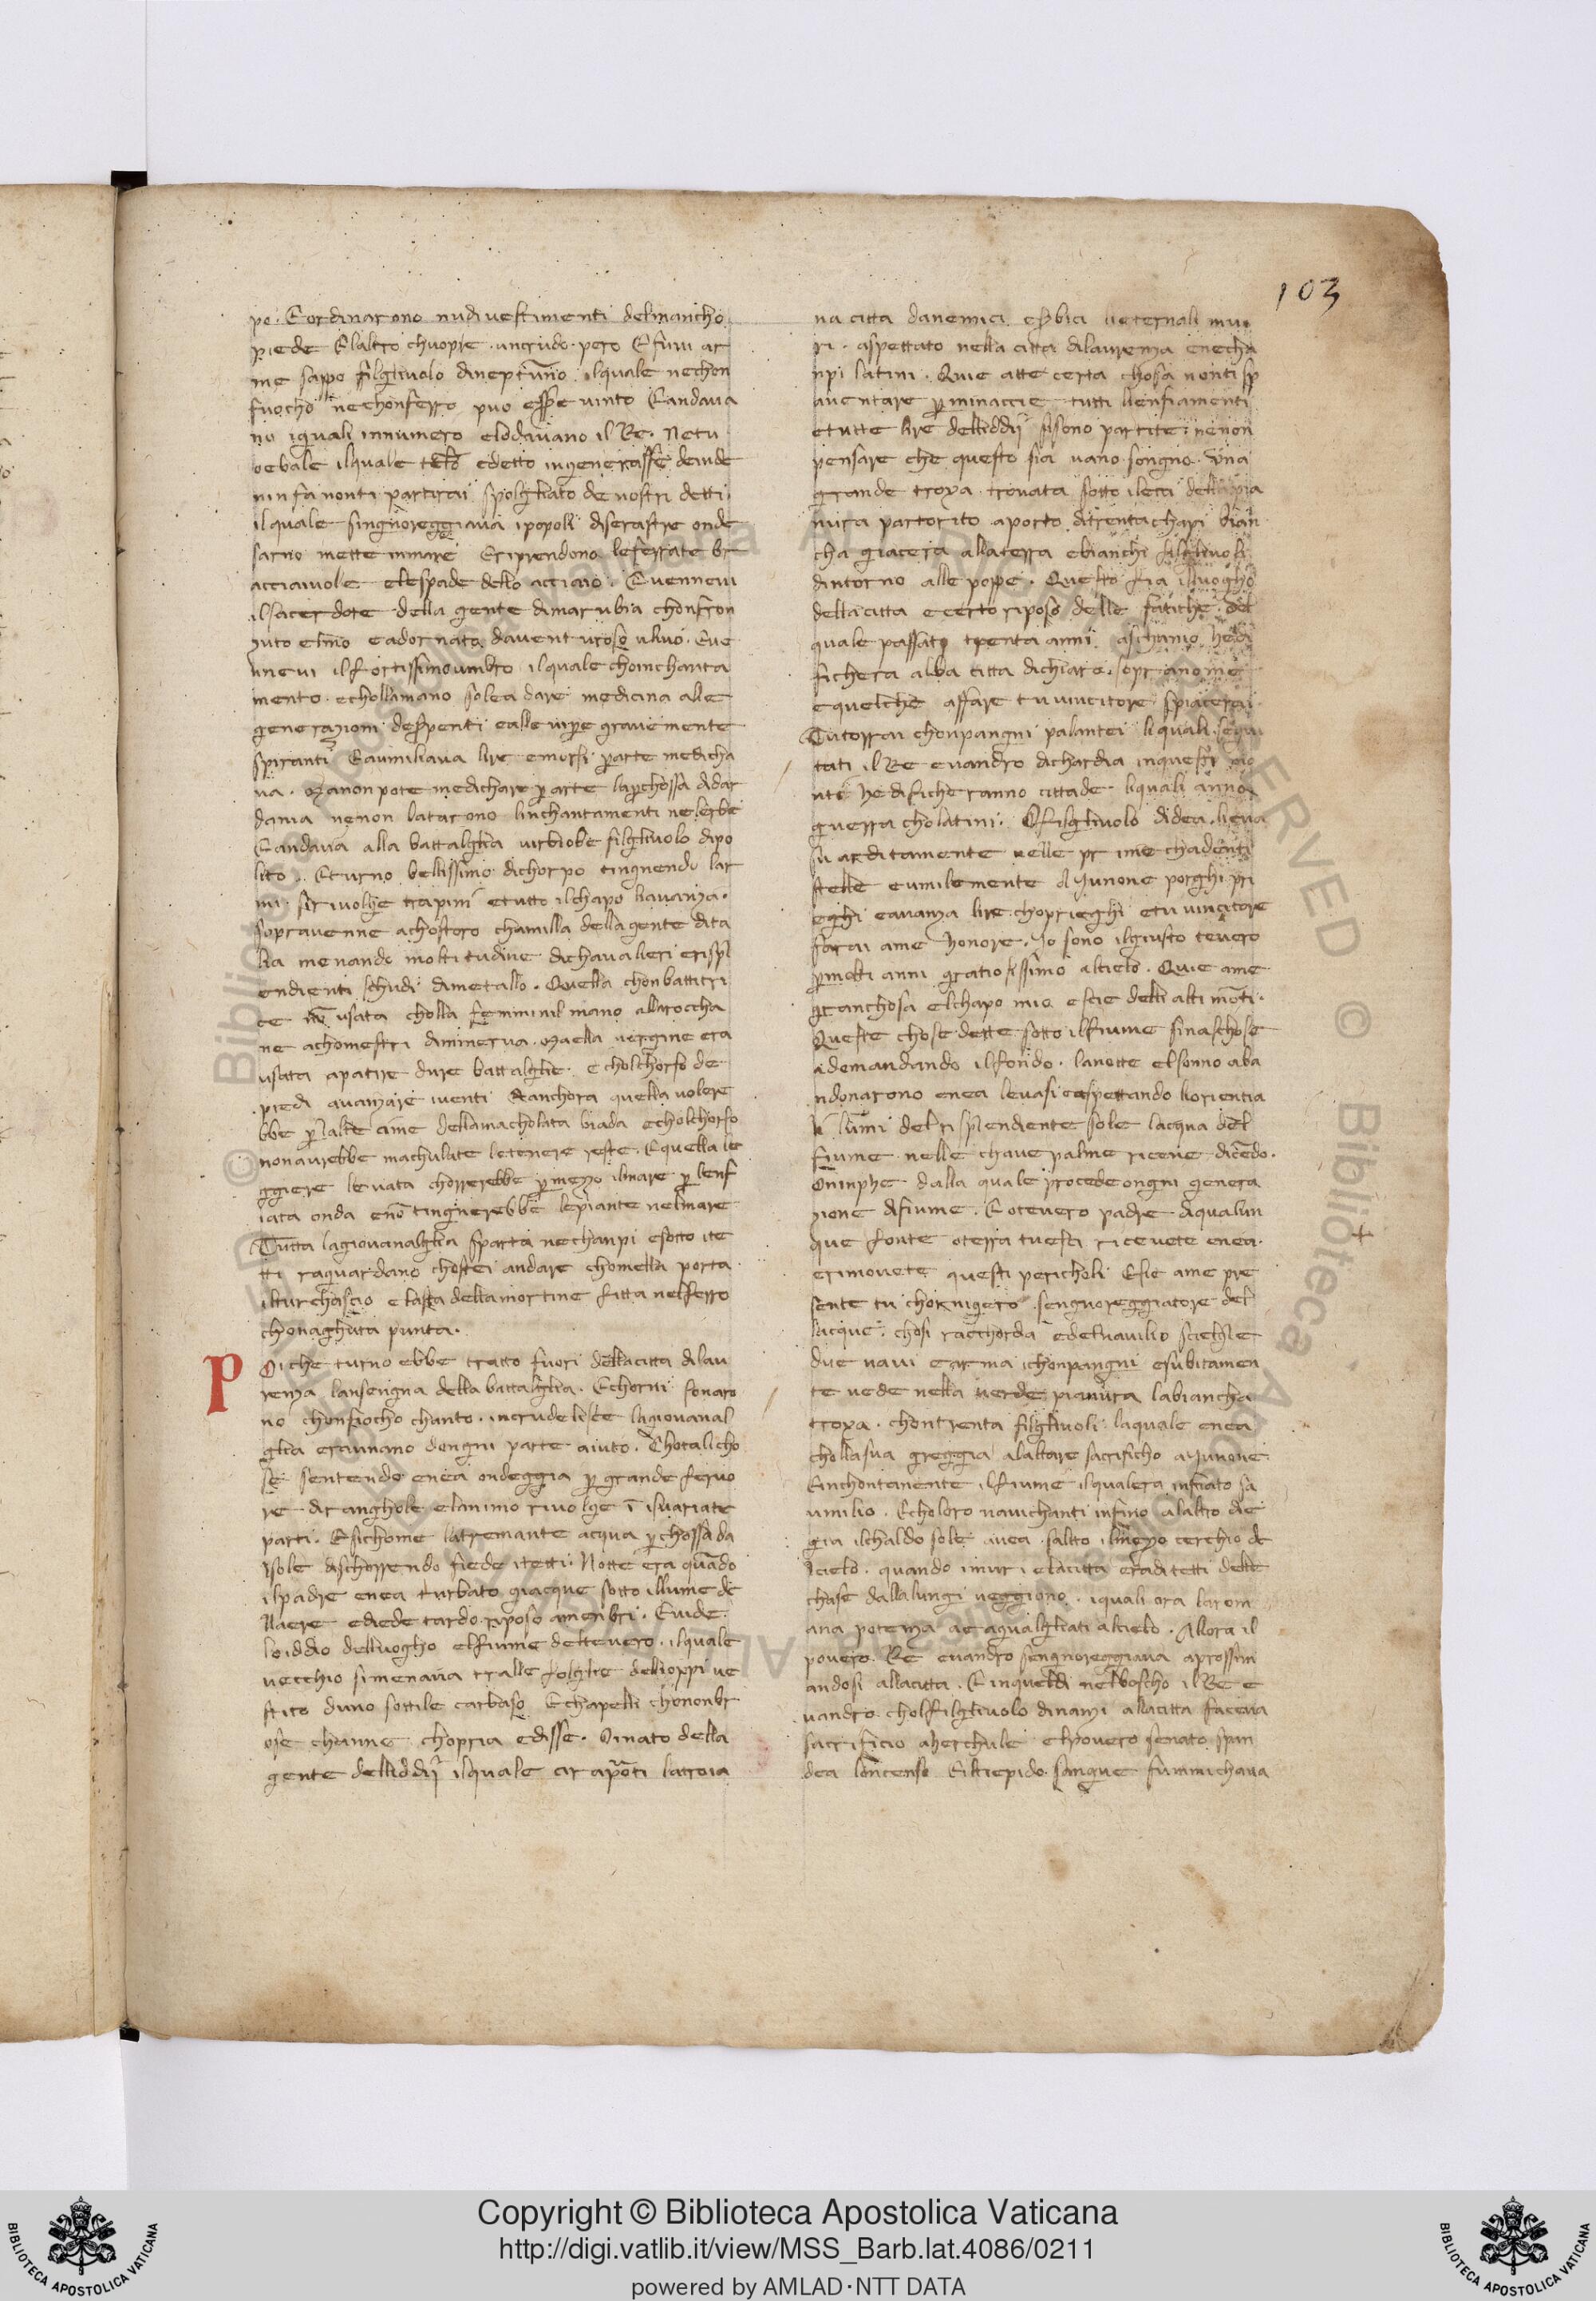 103
po. Eordinarono nudi vestimenti delmancho
piede Elaltro chuopre uncrudo pero Efuui ar
me sappo filgluolo dineptuno ilquale nechon
fuocho nechonferro puo essere uinto Eandaua
no iquali innumero elodavano il Re. Netu
oebale ilquale telo edetto ingenerasse deinde
ninfa nonti partirai spolgliato de nostri detti
ilquale singnoreggiaua ipopoli diserastre onde
sarno mette inmare Eriprendono leferrate br
acciaiuole elespade dello acciaio. Euenneui
ilsacerdote della gente dimarubia chonfron
zuto elmo eadornato daventuroso uliuo. Eue
nneui ilfortissimoumbro ilquale choinchanta
mento echollamano solea dare medicina alle
generazioni deserpenti ealle uipere grauemente
spiranti Eaumiliaua lire emorsi per arte medicha
ua. Manon pote medichare per arte laperchossa didar
dania nenon laiutarono linchantamenti nelerbe
Eandaua alla battalglia uirbiobe filgliuolo dipo
lito. Eturno bellissimo dichorpo tingnendo lar
mi sirivolge traprimi etutto ilchapo liauanza.
sopravenne achostoro chamilla della gente dita
lia menando moltitudine dichaualieri erispl
endienti schudi dimetallo. Quella chonbattitri
ce non usata cholla femminil mano allaroccha
ne achomestri diminerua. Maella uergine era
usata apatire dure battalglie. e cholchorso de
piedi auanzare iuenti Eanchora quella uolere
bbe per lalte cime dellamacholata biada echolchorso
nonaurebbe machulate letenere reste. Equella le
ggiere leuata chorrerebbe per mezzo ilmare per lenf
iata onda enon tingnerebbe lepiante nelmare
Tutta lagiouanalglia sparta nechanpi esotto ite
tti raguardano chostei andare chomella porta
ilturchascio elasta dellamortine fitta nelferro
chonaghuta punta.
Poiche turno ebbe tratto fuori dellacitta dilau
renza lansengna della battalglia. Echorni sonaro
no chonfiocho chanto. incrudeliscie lagiovanal
glia eraunano dongni parte aiuto. Chotalicho
se sentendo enea ondeggia per grande feruo
re di anghole elanimo riuolge in isuariate
parti. Esichome latremante acqua perchossa da
lsole dischorrendo fiede itetti. Notte era quando
ilpadre enea turbato giacque sotto illume de
llaere ediede tardo riposo amenbri. Euide
loiddio delluogho elfiume deltevero. ilquale
vecchio simenaua tralle folglie dellioppi ue
stito duno sottile carbaso Echapelli chononbr
ose channe chopria edisse. Oinato della
gente delliddii ilquale ci raporti latroia
na citta danemici eserbici lieternali mu
ri. aspettato nella citta dilaurenza enecha
npi latini. Quie atte certa chosa nonti sp
auentare per minaccie tutti lienfiamenti
etutte lire delliddii sisono partite: nenon
pensare che questo sia uano songno. Una
grande troya trovata sotto ileci della pia
nura partorito aporto ditrentachapi bian
cha giacera allaterra ebianchi filgliuoli
dintorno alle poppe. Questo fia illuogho
dellacitta ecerto riposo delle fatiche. del
quale passati trenta anni aschanio hedi
fichera alba citta dichiaro sopranome
equelche affare tu uincitore spiacerai
Tutorrai chonpangni palantei liquali segui
tati il Re euandro dichardia inquesti mo
nti hedificheranno cittade liquali anno
guerra cholatini. Ofilgliuolo didea. lieua
su arditamente nelle prime chadenti
stelle eumilemente a Junone porghi pri
eghi eauanza lire choprieghi etu uincitore
farai ame honore. Jo sono ilgiusto teuero
permolti anni gratiosissimo alcielo. Quie ame
granchosa elchapo mio escie delli alti monti.
Queste chose dette sotto ilfiume sinaschose
adomandando ilfondo. lanotte elsonno aba
ndonarono enea leuasi easpettando liorientia
li lumi delrisplendiente sole lacqua del
fiume nelle chaue palme riceue dicendo.
Oninphe dalla quale procede ongni genera
zione difiume. Eoteuero padre diqualun
que fonte oterra tuesci riceuete enea.
erimouete questi pericholi Esie ame pre
sente tu chornigero sengnoreggiatore del
lacque. chosi racchorda edelnauilio scielse
due naui earma ichonpangni esubitamen
te uede nella uerde pianura labiancha
troya. chontrenta filgliuoli laquale enea
chollasua greggia alaltare sacrificho a Junone
Einchontanente ilfiume ilqualera infiato sa
umilio. Echoloro nauichanti infino alaltro die
gia ilchaldo sole auea salito ilmezzo cerchio de
lcielo. quando imuri elacitta eradi tetti delle
chase dallalungi ueggiono. iquali ora larom
ana potenza ae aqualgliati alcielo. Allora il
pouero Re euandro sengnoreggiaua aprossim
andosi allacitta. E inqueldi nelboscho il Re e
uandro cholfilgliuolo dinanzi allacitta faceua
sacrificio aherchule elpouero senato span
dea loncenso Eiltiepido sangue fummichaua